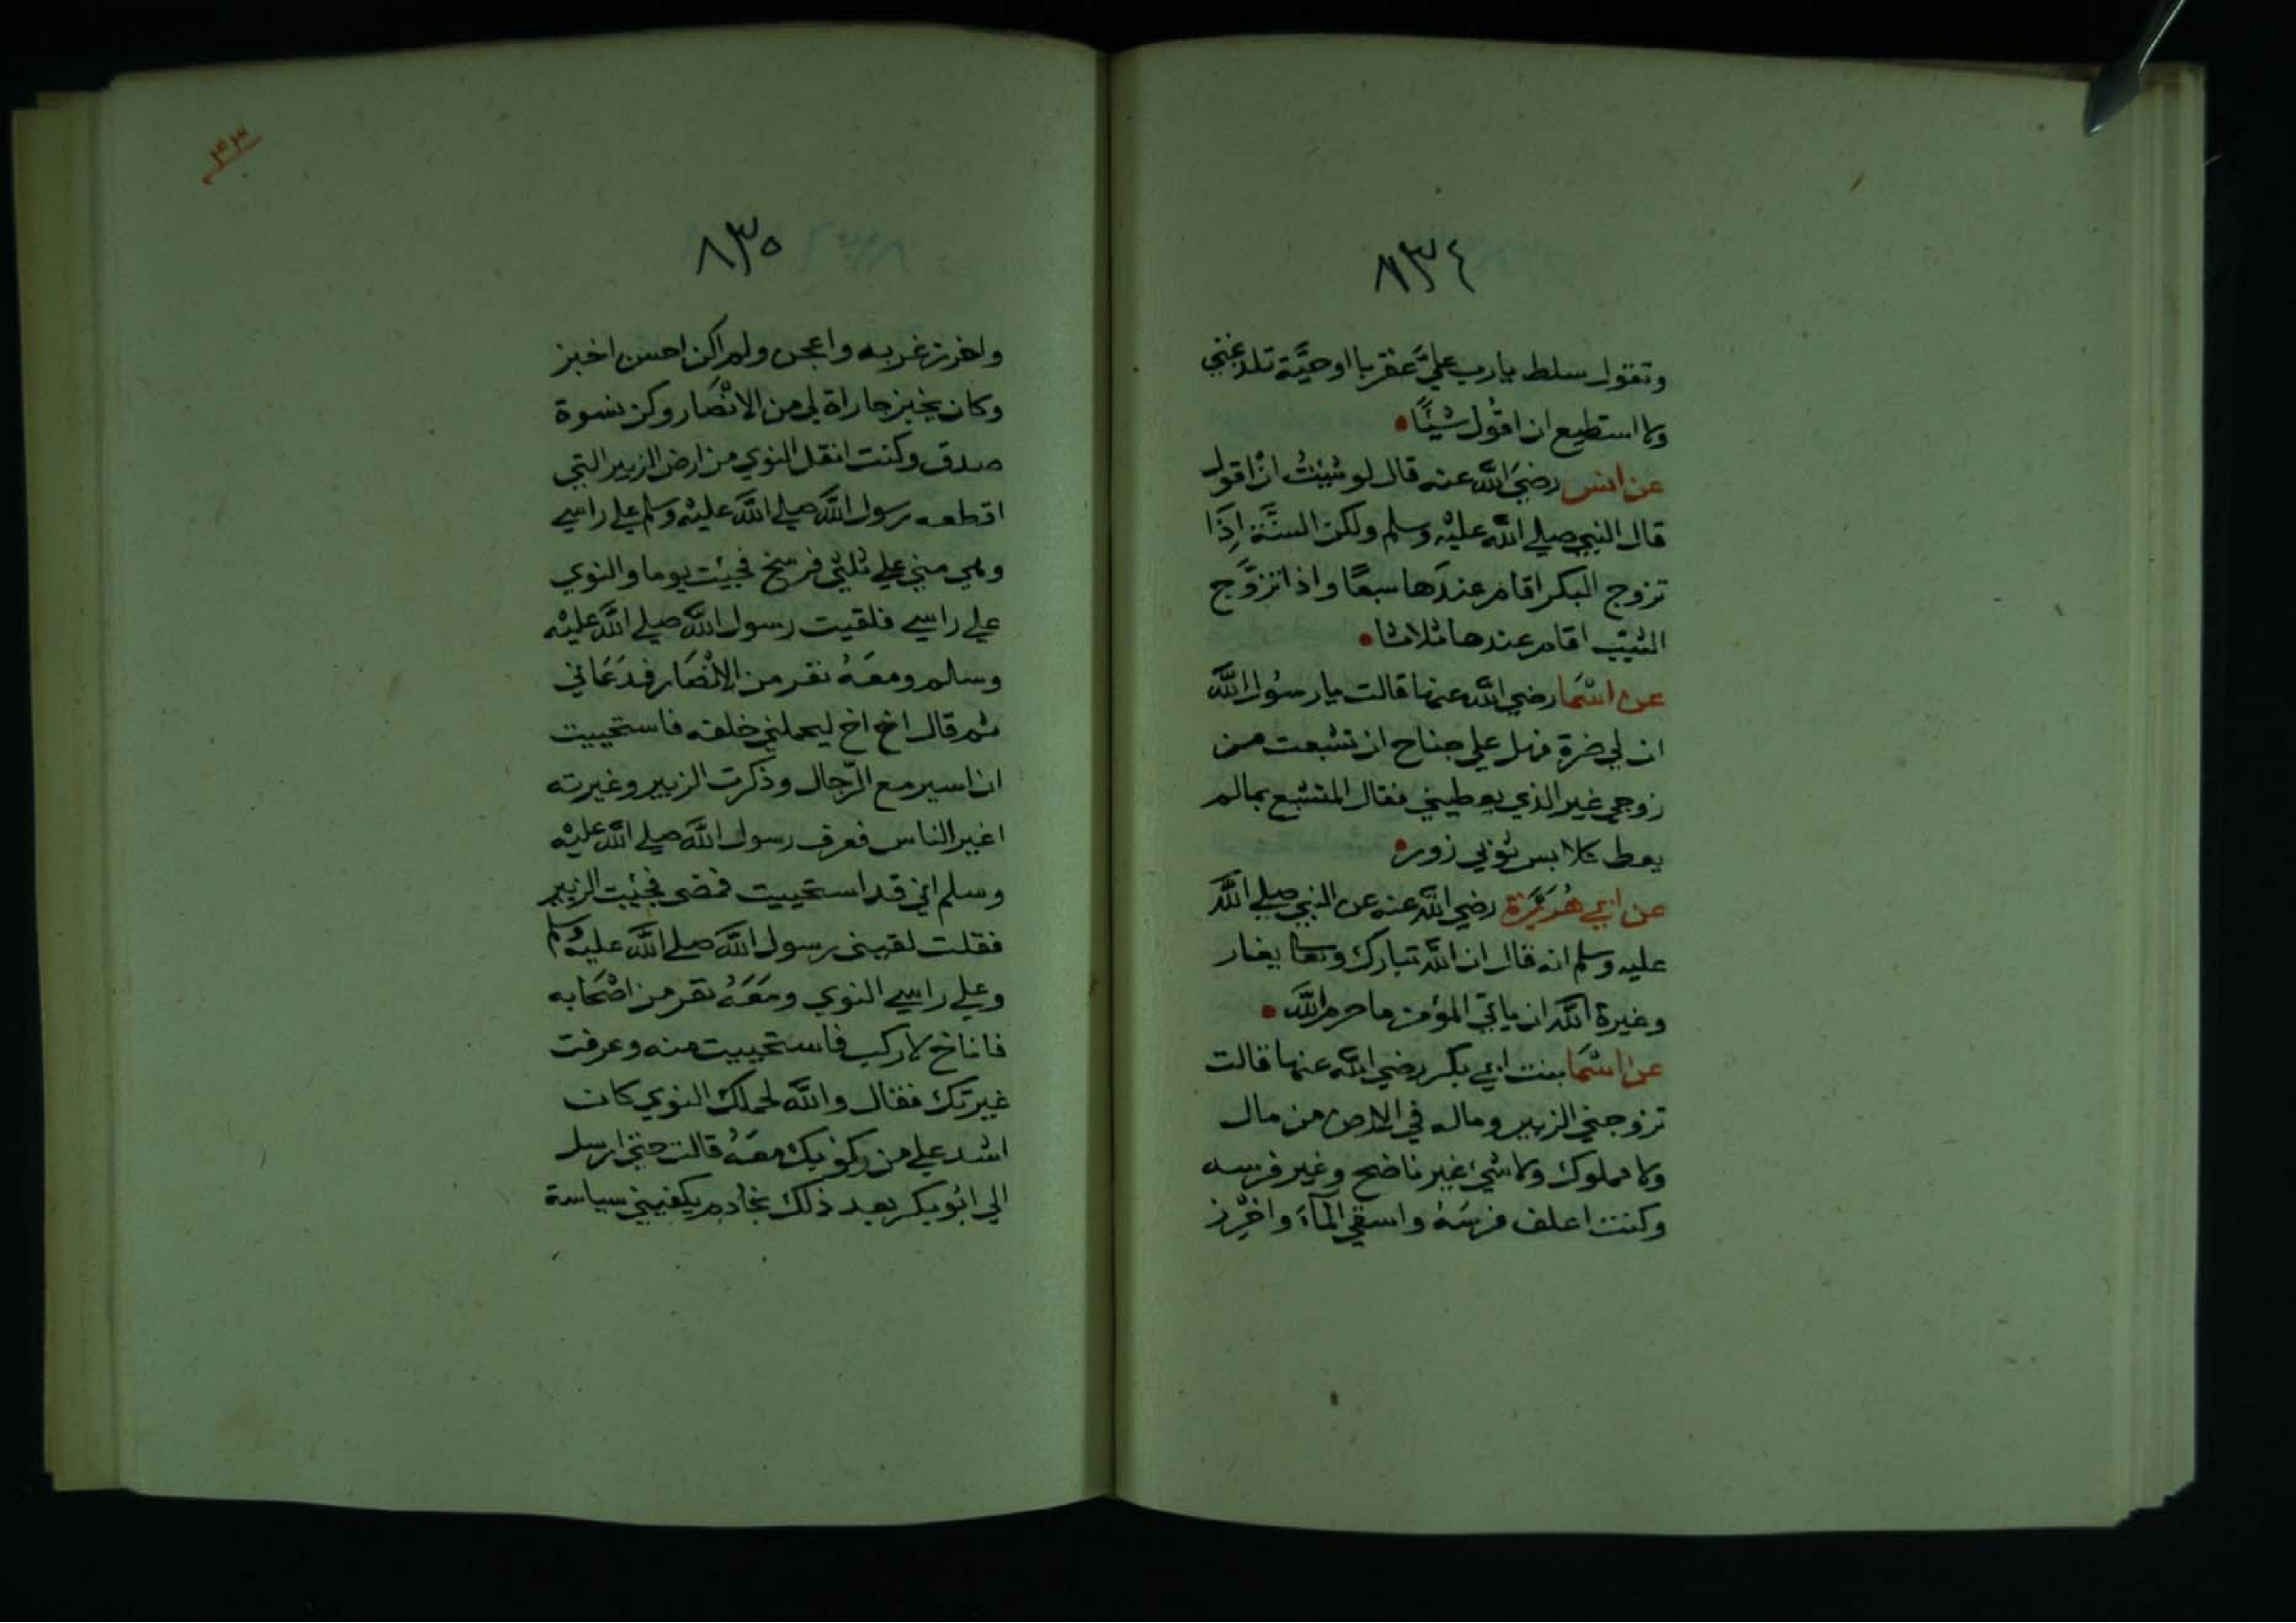 ٨٣٤
وتقول سلط يارب عليَّ عقربا اوحيَّة تلدغني
ولا استطيع ان اقُول شئًا
عن انس رضيَ الله عنه قال لو شيئتُ انْ اقول
قال النبي صلي الله عليْه وسلم ولكن السنَّة اِذَا
تزوج البكر اقام عندَها سبعًا واذا تزوَّج
الثيّب اقام عندها ثلاثا
عن اسْمَا رضي الله عنها قالت يارسُول الله
ان لي ضرة فهل علي جناح ان تشبعت من
زوجي غير الذي يعطيني فقال المتشبع بمالم
يعط كلابس ثوبي زور
عن ابي هُرَيْرَة رضي الله عنه عن النبي صلي الله
عليه وسلم انه قال ان الله تبارك وتعا يغار
وغيرة الله ان ياتي المؤمن ما حرم الله
عن اسْمَا بنت ابي بكر رضي الله عنها قالت
تزوجني الزبير وماله في الارض من مال
ولا مملوك ولا شيٍ غير ناضح وغير فرسه
وكنت اعلف فرسَهُ واسقي المآءَ واخْرِز
٤٣
٨٣٥
واخرز غربه واعجن ولم اكن احسن اخبز
وكان يخبز جاراة لي من الانْصَار وكن نسوة
صدق وكنت انقل النوي من ارض الزبير التي
اقطعه رسول الله صلي الله عليْه وسلم علي راسي
وهي مني علي ثلثي فرسخ فجيئت يوما والنوي
علي راسي فلقيت رسول الله صلي الله عليْه
وسلم ومعَهُ نفر من الانْصَار فدَعَاني
ثم قال اخ اخ ليحملني خلفه فاستحييت
ان اسير مع الرّجال وذكرت الزبير وغيرته
اغير الناس فعرف رسول الله صلي الله عليْه
وسلم اني قد استحييت فمضى فجئيت الزبير
فقلت لقيني رسول الله صلي الله عليْه وسلم
وعلي راسي النوي ومَعَهُ نفر من اصْحَابه
فاناخ لاركب فاستحييت منه وعرفت
غيرتك فقال والله لحملك النوي كان
اشد علي من ركوبك معَهُ قالت حتي ارسل
الي ابُو بكر بعد ذلك بخادم يكفيني سياسة